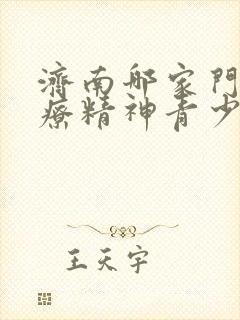 濟南邮家門
療精神青少
王天宇